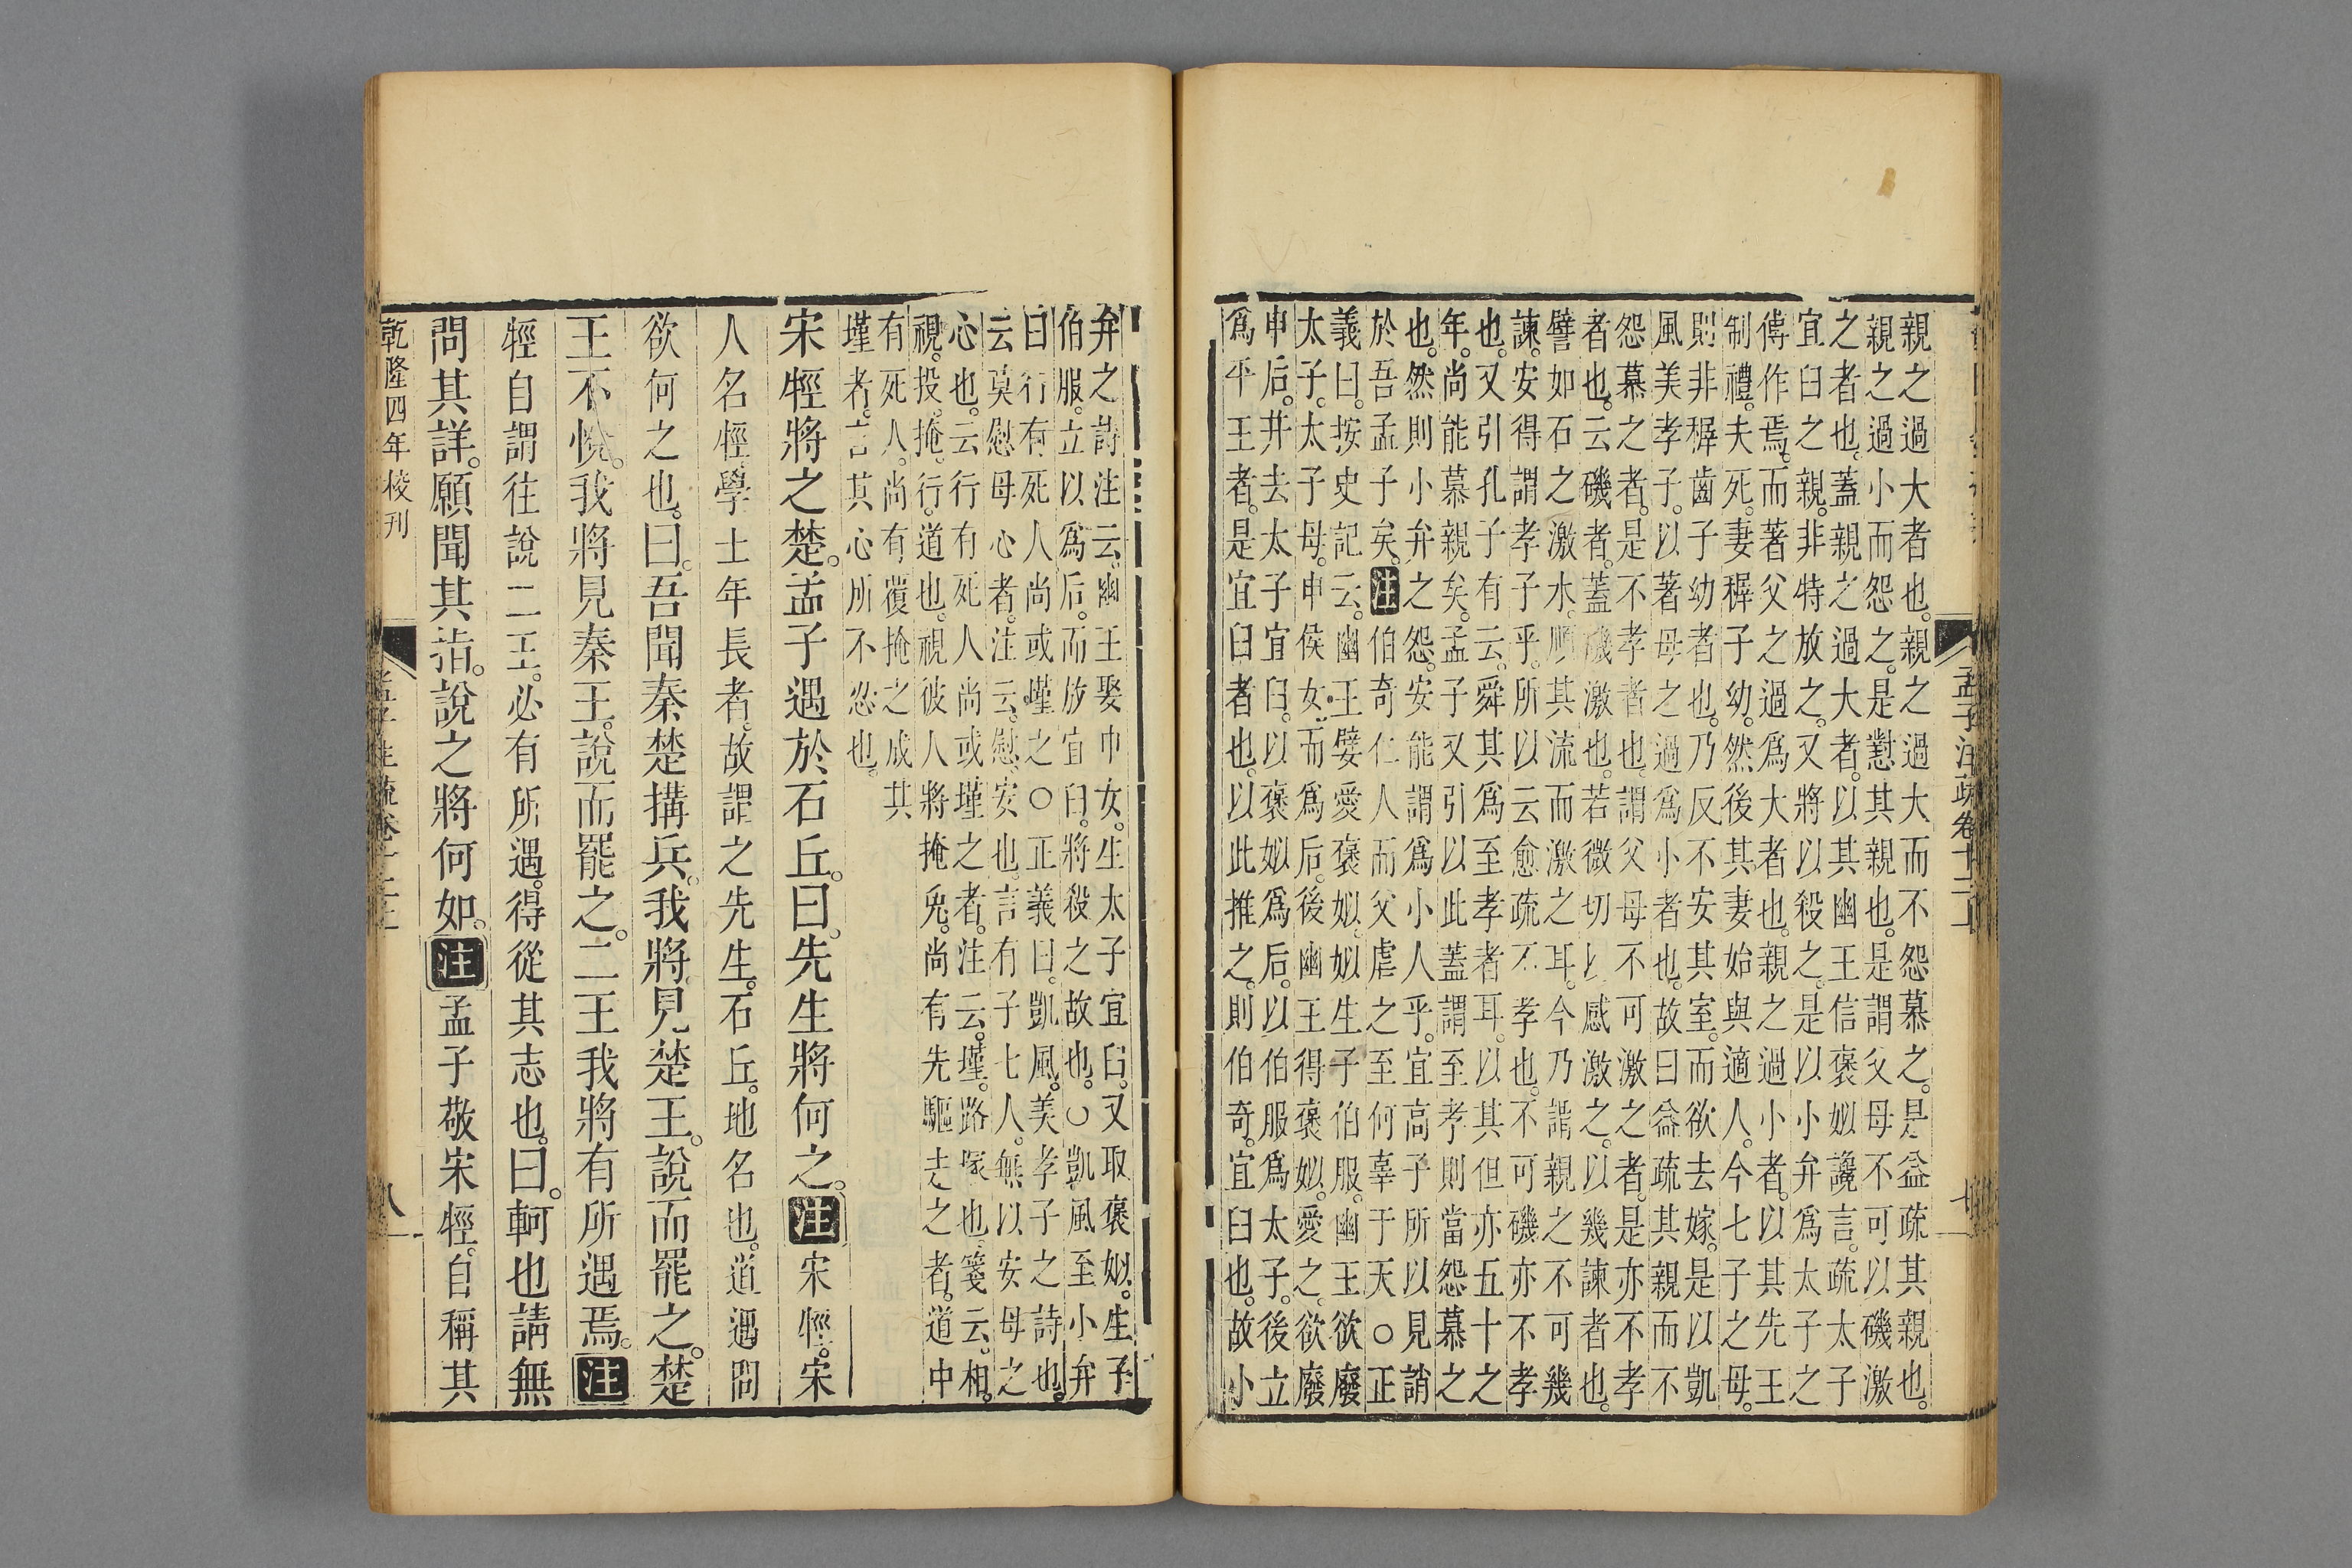 親之過大者也。親之過大而不怨慕之。是益疏其親也。
親之過小而怨之。是懟其親也。是謂父母不可以磯激
之者也。蓋親之過大者。以其幽王信褒姒讒言。疏太子
宜臼之親。非特放之。又將以殺之。是以小弁爲太子之
傅作焉。而著父之過爲大者也。親之過小者。以其先王
制禮。夫死。妻穉子幼。然後其妻始與適人。今七子之母。
則非穉齒子幼者也。乃反不安其室。而欲去嫁。是以凱
風美孝子。以著母之過爲小者也。故曰益疏其親而不
怨慕之者。是不孝者也。謂父母不可激之者。是亦不孝
者也。云磯者。蓋磯激也。若微切以感激之。以幾諫者也。
譬如石之激水。順其流而激之耳。今乃謂親之不可幾
諫。安得謂孝子乎。所以云愈疏不孝也。不可磯亦不孝
也。又引孔子有云。舜其爲至孝者耳。以其但亦五十之
年。尚能慕親矣。孟子又引以此蓋謂至孝則當怨慕之
也。然則小弁之怨。安能謂爲小人乎。宜高子所以見誚
於吾孟子矣。注伯奇仁人而父虐之至何辜于天○正
義曰。按史記云。幽王嬖愛褒姒。姒生子伯服。幽王欲廢
太子。太子母。申侯女。而爲后。後幽王得褒姒。愛之。欲廢
申后。并去太子宜臼。以褒姒爲后。以伯服爲太子。後立
爲平王者。是宜臼者也。以此推之。則伯奇。宜臼也。故小
孟子注疏卷十二上
七
弁之詩注云。幽王娶申女。生太子宜臼。又取褒姒。生子
伯服。立以爲后。而放宜臼。將殺之故也。○凱風至小弁
曰行有死人尚或墐之○正義曰。凱風。美孝子之詩也。
云莫慰母心者。注云。慰、安也。言有子七人。無以安母之
心也。云行有死人尚或墐之者。注云。墐。路冢也。箋云。相。
視。投。掩。行。道也。視彼人將掩兔。尚有先驅走之者。道中
有死人。尚有覆掩之成其
墐者。言其心所不忍也。
宋牼將之楚。孟子遇於石丘。曰。先生將何之。注宋牼。宋
人名牼學士年長者。故謂之先生。石丘。地名也。道遇問
欲何之也。曰。吾聞秦楚搆兵。我將見楚王。說而罷之。楚
王不悅。我將見秦王。說而罷之。二王我將有所遇焉。注
牼自謂往說二王。必有所遇。得從其志也。曰。軻也請無
問其詳。願聞其指。說之將何如。注孟子敬宋牼。自稱其
乾隆四年校刊
孟子注疏卷十二上
八